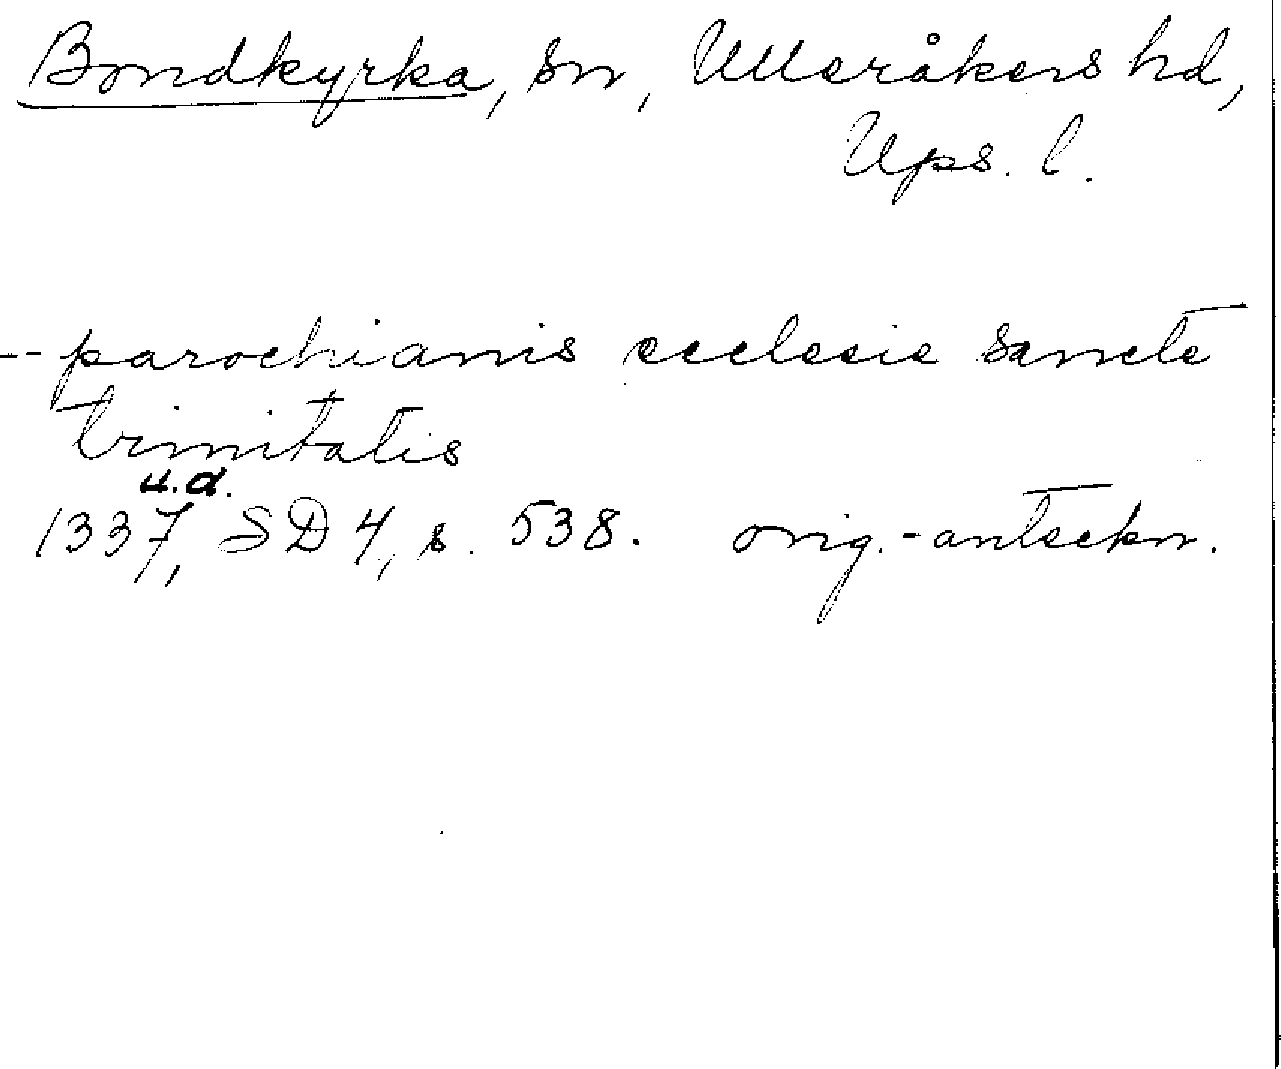 Bondkyrka, sn, Ulleråkers hd,
Ups. l.
-- parochianis ecclesie sancte
trinitatis
u.d.
1337, SD 4, s. 538. orig.-anteckn.